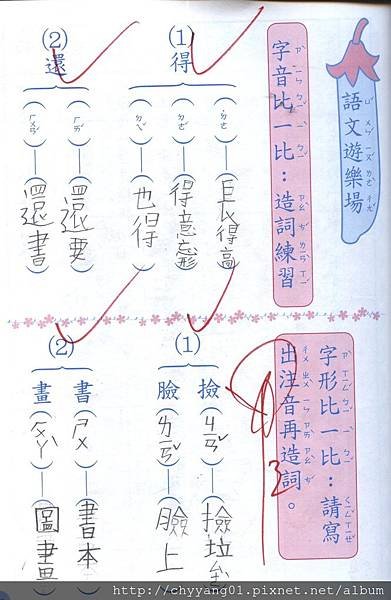 語文遊樂場
字音比一比：造詞練習
(1)得（˙ㄉㄜ）—（長得高）
（ㄉㄜˊ）—（得意忘形）
（ㄉㄟˇ）—（也得）
(2)還（ㄏㄞˊ）—（還要）
（ㄏㄨㄢˊ）—（還書）
字形比一比：請寫
出注音再造詞。
(1)撿（ㄐㄧㄢˇ）—（撿垃圾）
臉（ㄌㄧㄢˇ）—（臉上）
(2)書（ㄕㄨ）—（書本）
畫（ㄏㄨㄚˋ）—（圖畫）
http://chyyang01.pixnet.net/album